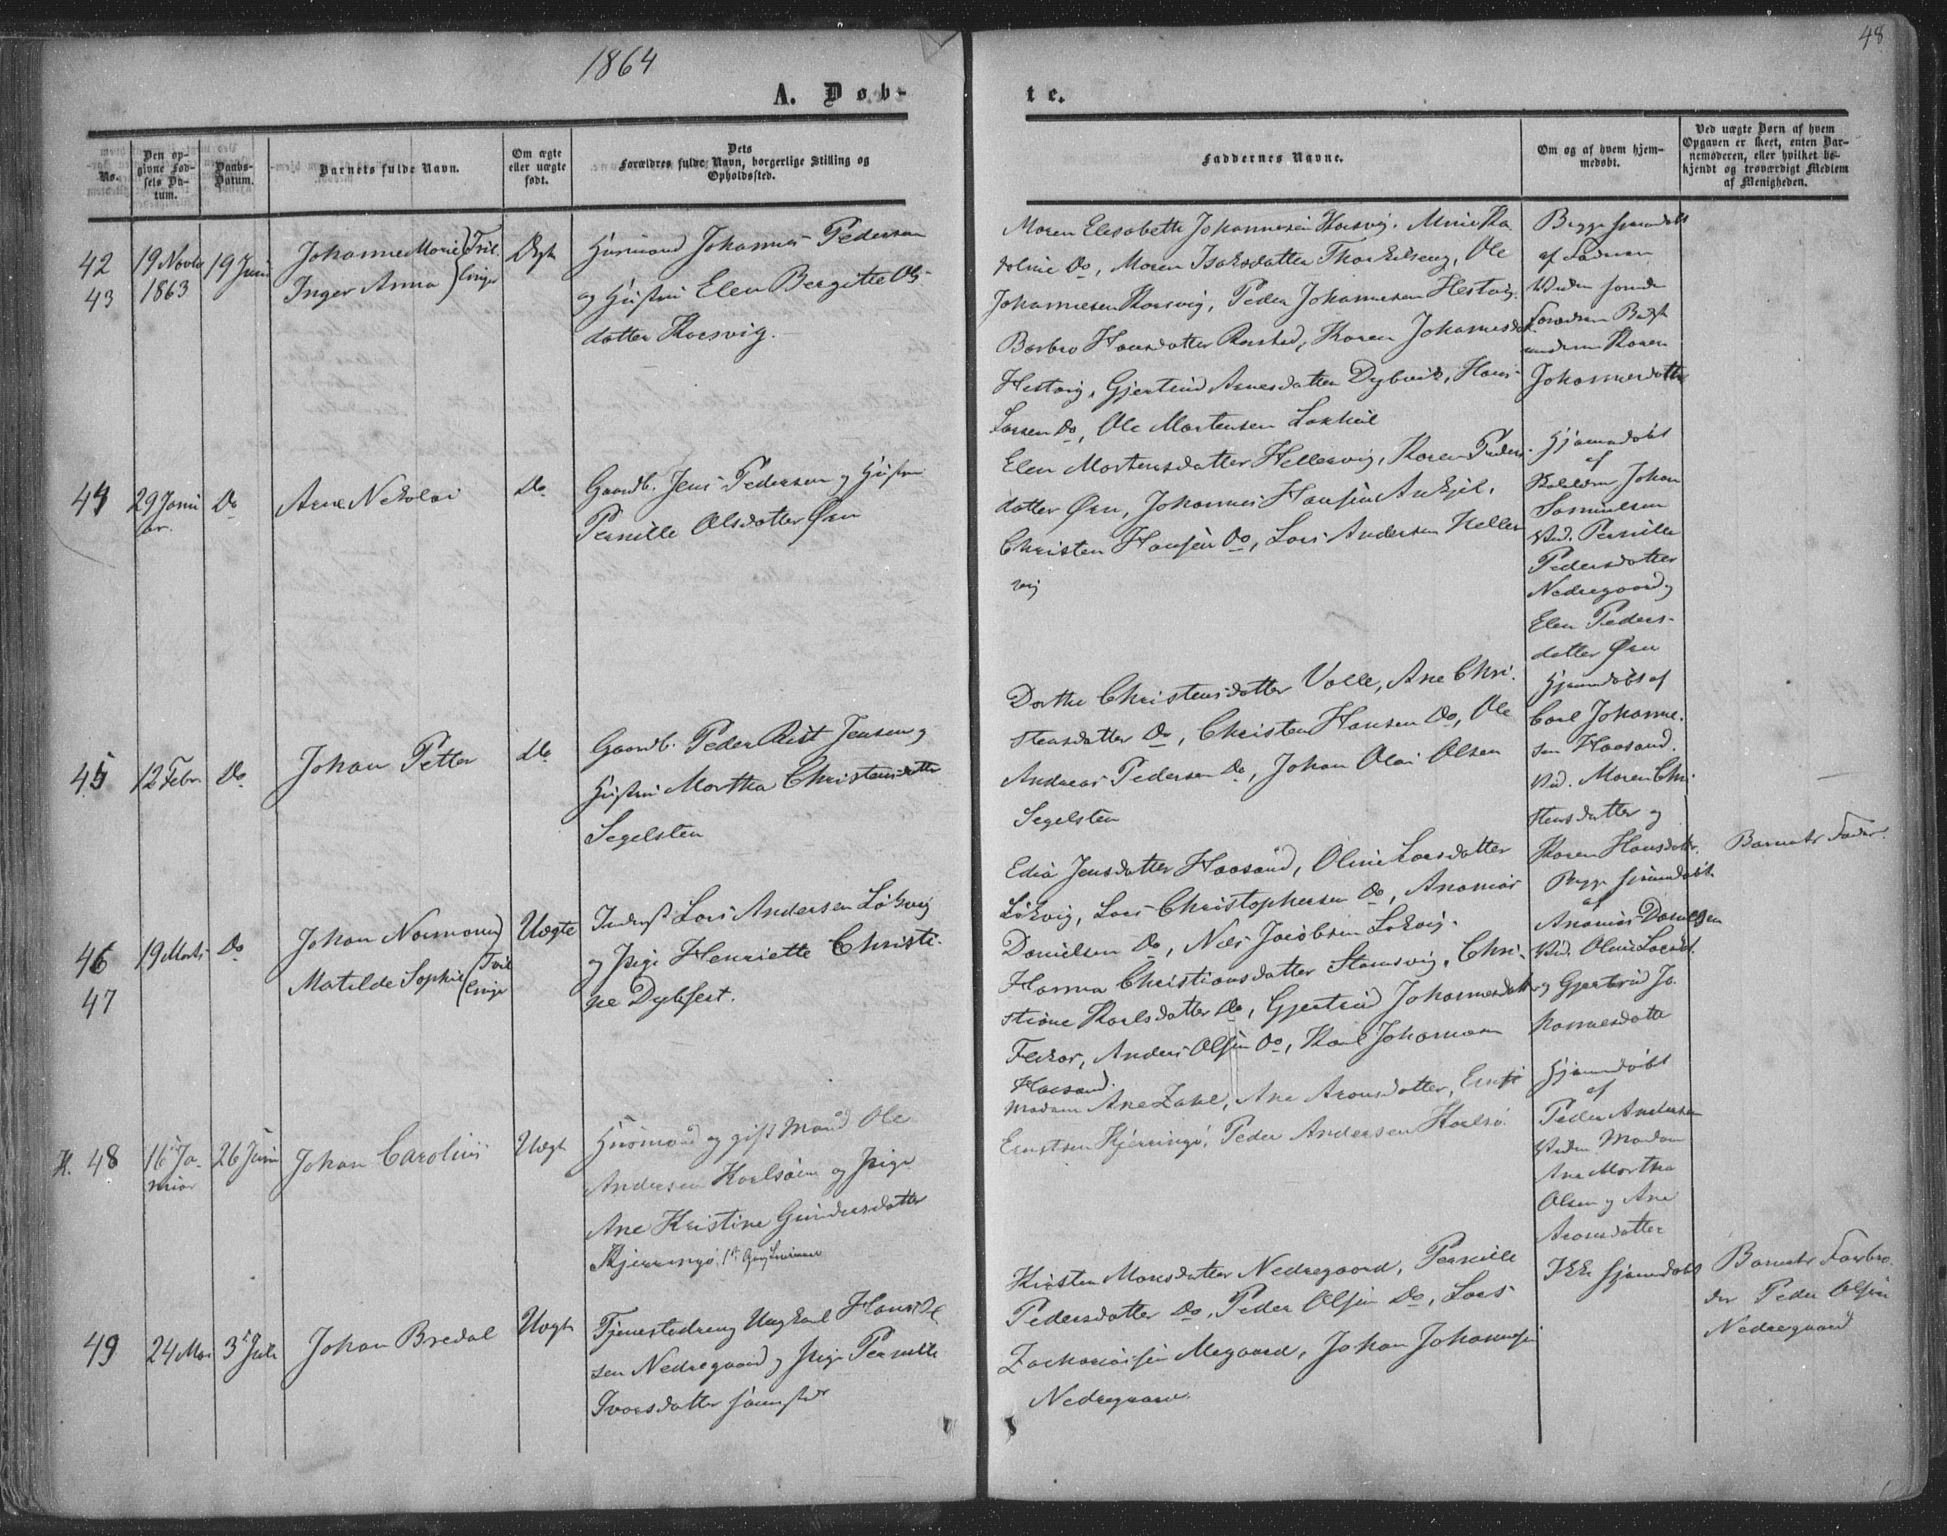 48
1864
A. Døb-
te.
No.
Den op-
givne Fød-
sels Da-
tum.
Daabs-
Datum.
Barnets fulde Navn.
Om ægte
eller uægte
født.
Dets
Forældres fulde Navn, borgerlige Stilling og
Opholdssted.
Faddernes Navne.
Om og af hvem hjem-
medøbt.
Ved uægte Børn af hvem
Opgaven er skeet, enten Bar-
nemoderen, eller hvilket be-
kjendt og troværdigt Medlem
af Menigheden.
42
43
19 Novbr
1863
19 Juni
Johanne Marie
Inger Anna
Tvil
linger
Ægte
Huusmand Johannes Pedersen
og Hustru Elen Bergitte Ols-
datter Korsvig.
Maren Elisabeth Johannesen Korsvig.
Do, Maren Isaksdatter Thorkilseng, Ole
Johannesen Korsvig, Peder Johannesen Hestvig,
Barbro Hansdatter Karsted, Karen Johannesdat.
Hestvig, Gjertrud Arnesdatter Dybvik, Hans
Larsen Do, Ole Mortensen Laxhiil
Begge hjemdøbt
af Faderen
Viden foruden
Forældrene
Karen
Johannesdatter
44
29 Janu
ar.
Do
Arne Nekolai
Do
Gaardb. Jens Pedersen og Hustru
Pernille Olsdatter Øen
Elen Mortensdatter Hellesvig, Karen Peders
datter Øen, Johannes Hansen Aakjil,
Christen Hansen Do, Lars Andersen Helles
vig
Hjemmedøbt
af
Johan
Samuelsen
Vid. Pernille
Pedersdatter
Nedregaard og
Elen Peders-
datter Øen
45
12 Febr
Do
Johan Petter
Do
Gaardb. Peder Rist Jensen og
Hustru Martha Christensdatter
Segelsten
Dorthe Christensdatter Valle, Ane Chri.
stensdatter Do, Christen Hansen Do, Ole
Andreas Pedersen Do, Johan Olai Olsen
Segelsten
Hjemdøbt af
Carl Johanne.
sen Haasand.
Vid. Maren Chri
stensdatter og
Karen Hansdatr.
46
47
19 Marts
Do
Johan Normann
Matilde Sophie
Tvil
linger
Uægte
Inderst Lars Andersen Løkvig
og Pige Henriette Christi-
ne Dybfest.
Edia Jensdatter Haasand, Oline Larsdatter
Løkvig, Lars Christophersen Do, Ananias
Danielsen Do, Nils Jacobsen Løkvig.
Hanna Christiansdatter Stamsvig, Chri-
stiane Karlsdatter Do, Gjertrud Johannesdatter
Anders Olsen Do, Karl Johannesen
Haasand.
Begge hjemdøbt
af
Ananias Danielsen
Vid. Oline Larsdt.
og Gjertrud Jo
hannesdatter
Barnets Fader.
K. 48
16 Ja-
nuar
26 Juni
Johan Carolius
Uægt
Huusmand og gift Mand Ole
Andersen Karlsøen og Pige
Ane Kristine Gundersdatter
Kjerringø,
Madam Ane Zahl, Ane Aronsdatter, Ernst
Ernstsen Kjerringø, Peder Andersen Karlsø.
Hjemmedøbt
af
Peder Andersen
Viden Madam
Ane Martha
Olsen og Ane
Aronsdatter
49
24 Mai
3 Juli
Johan Bredal
Uægt
Tjenestedreng Ungkarl Hans Ol
sen Nedregaard og Pige Pernille
Ivarsdatter samsteds
Kirsten Monsdatter Nedregaard, Pernille
Pedersdatter Do, Peder Olsen Do, Lars
Zachariasen Megaard, Johan Johannesen
Nedregaard
Ikke hjemdøbt
Barnets Farbro
der Peder Olsen
Nedregaard